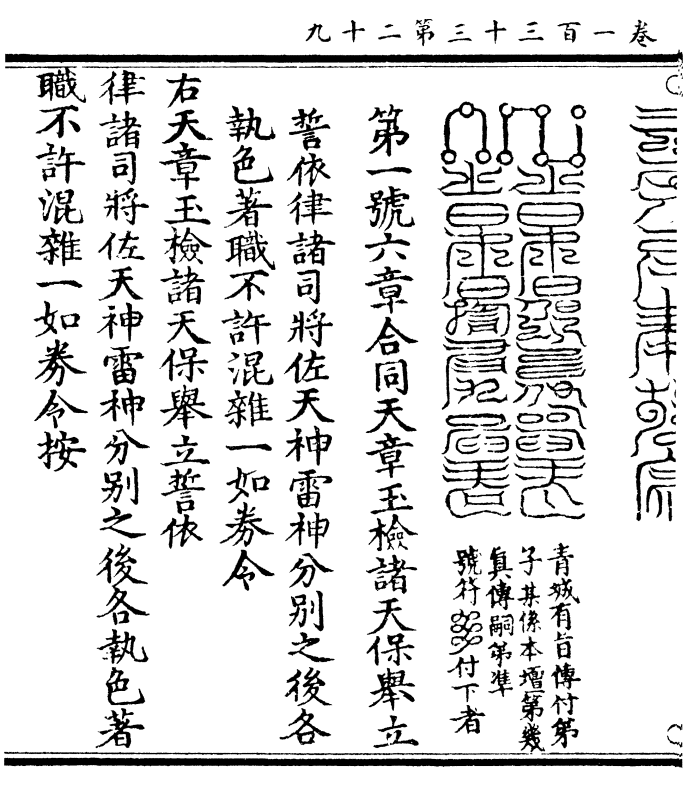 卷一百三十三第二十九
青城有旨傳付第
子某係本壇第幾
眞傳嗣第準
號符付下者
第一號六章合同天章玉檢諸天保舉立
誓依律諸司將佐天神雷神分別之後各
執色著職不許混雜一如券令
右天章玉檢諸天保舉立誓依
律諸司將佐天神雷神分別之後各執色著
職不許混雜一如券令按